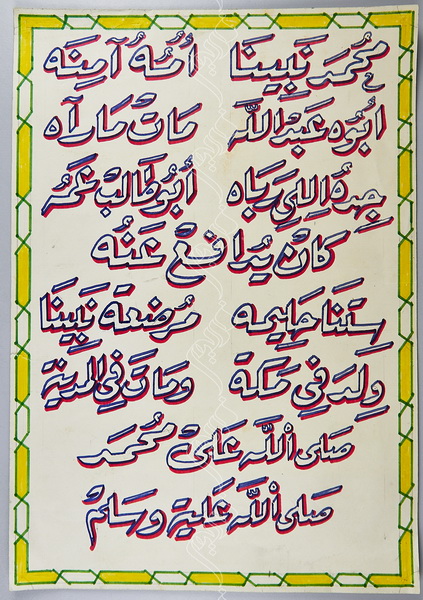 محمد نبينا أمُّهُ آمِنَه
أبُوه عَبدْ اللَّه مَاتْ مَا رَآه
جِدهُ اللِي رَبَاه أبُو طَالبْ عَمهُ
كَانْ يُدافِعْ عَنُه
سِتنَا حَلِيمه مُرضعة نَبِينَا
وِلدَ فِي مَكة وَمَات فِي المدينة
صَلى اللَّه عَلىْ مُحمد
صَلى اللَّه عَلية وَسَلمْ